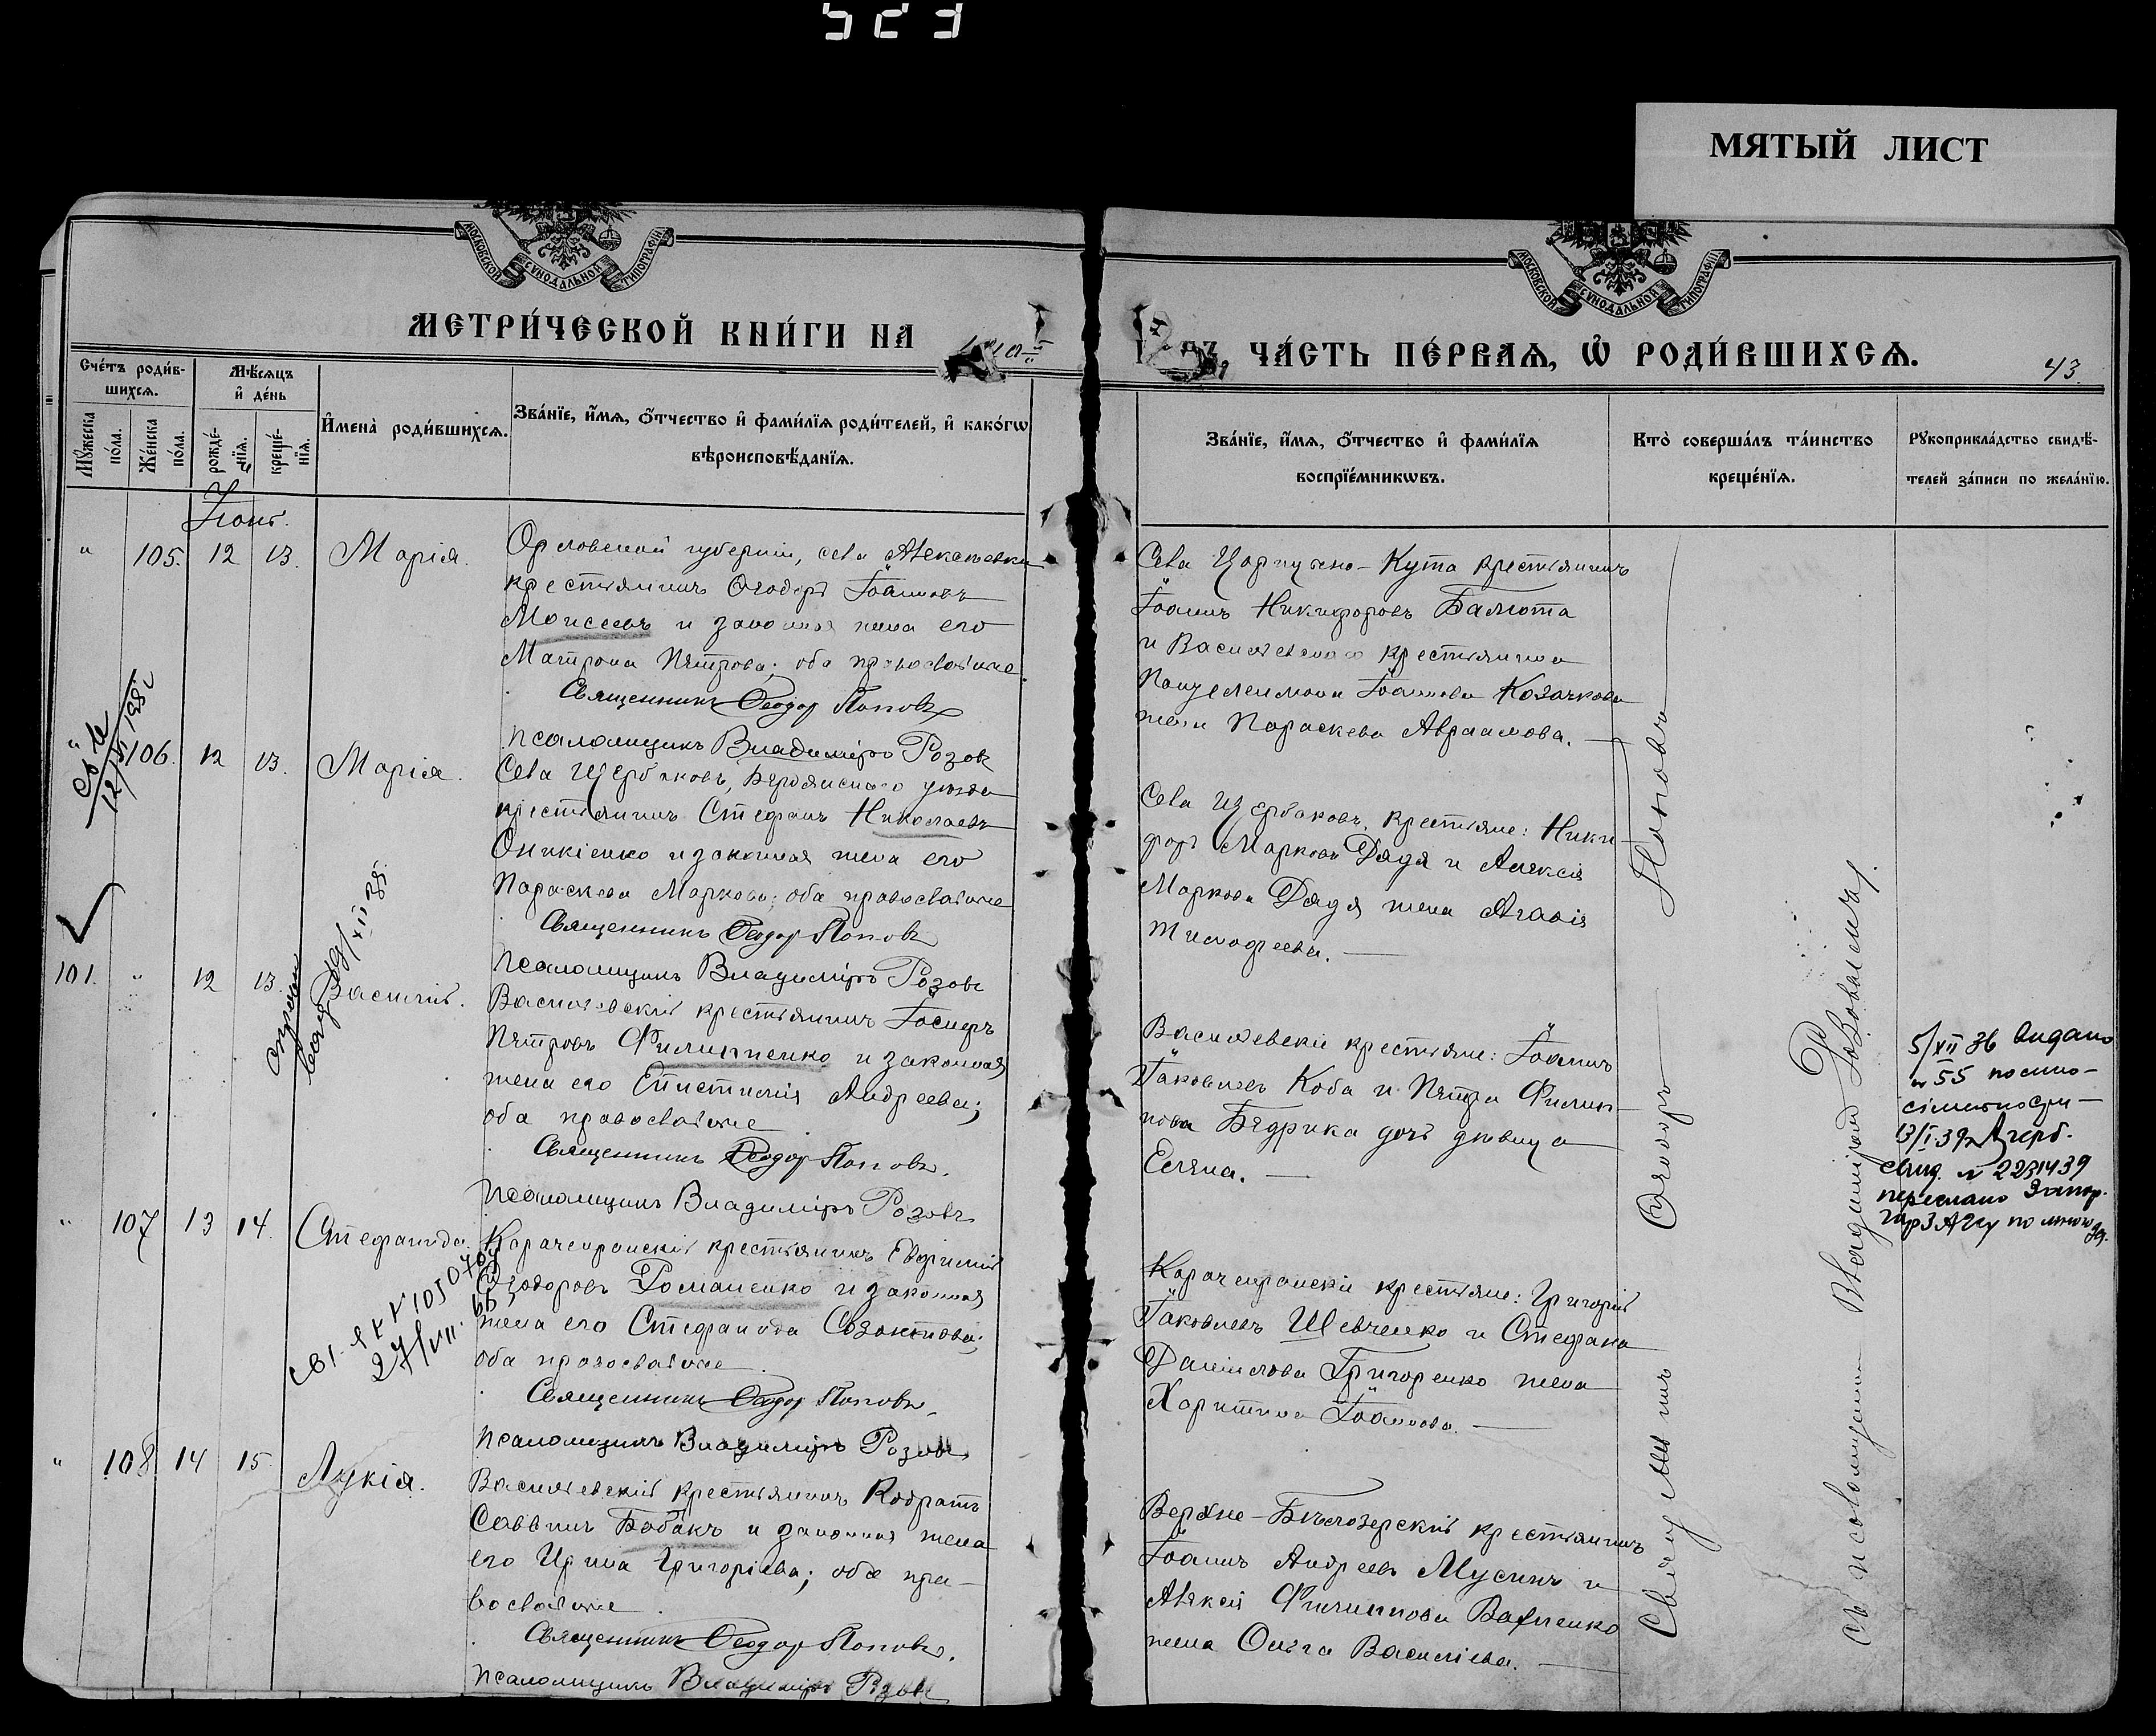 523
МЯТЫЙ ЛИСТ
МОСКОВСКОЙ СѴНОДАЛЬНОЙ ТИПОГРАФІИ
МОСКОВСКОЙ СѴНОДАЛЬНОЙ ТИПОГРАФІИ
МЕТРИ́ЧЕСКОЙ КНИ́ГИ НА
ЧА́СТЬ ПЕ́РВАЯ, Ѡ҆ РОДИ́ВШИХСЯ.
43.
Сче́тъ роди́в-
шихся.
Мѣ́сяцъ
и҆ де́нь
Мꙋ́жеска
по́ла.
Же́нска
по́ла.
рожде́-
нїя.
креще́-
нїя.
И҆мена̀ роди́вшихся.
Зва́нїе, и҆́мя, ѻ҆́тчество и҆ фами́лїя роди́телей, и҆ како́гѡ
вѣроисповѣ́данїя.
Зва́нїе, и҆́мя, ѻ҆́тчество и҆ фами́лїя
воспрїе́мникѡвъ.
Кто̀ соверша́лъ та́инство
креще́нїя.
Рꙋкоприкла́дство свидѣ́-
телей за́писи по жела́нїю.
Іюнь.
" 105. 12 13. Марія.
Орловской губерніи, села Алексѣевки
крестьянинъ Ѳеодоръ Іоанновъ
Моисеевъ и законная жена его
Матрона Петрова; оба православные.
Священникъ Ѳеодор Поповъ
Псаломщикъ Владиміръ Розов
Села Царицыно-Кута крестьянинъ
Іоаннъ Никифоровъ Балюта
и Васильевскаго крестьянина
Пантелеимона Іоаннова Козачкова
жена Параскева Авраамова.
106. 12 13. Марія.
Села Щербаковъ, Бердянскаго уѣзда
крестьянинъ Стефанъ Николаевъ
Оникіенко и законная жена его
Параскева Маркова; оба православные
Священникъ Ѳеодор Поповъ
Псаломщикъ Владиміръ Розовъ
Села Щербаковъ, крестьяне: Ники
форъ Марковъ Дядя и Алексія
Маркова Дядя жена Агафія
Тимофеева.
101. " 12 13. Василій.
Васильевскій крестьянинъ Іосифъ
Петровъ Филиппенко и законная
жена его Епистимія Андреева;
оба православные
Священникъ Ѳеодор Поповъ.
Псаломщикъ Владиміръ Розовъ
Васильевскіе крестьяне: Іоаннъ
Іаковлевъ Коба и Петра Филип-
пова Бедрика дочь дѣвица
Елена.
5/XII 36 видано
№ 55
13/I.39
№ 2231439
" 107 13 14. Стефанида.
Карачекракскій крестьянинъ Евфимій
Ѳеодоровъ Романенко и законная
жена его Стефанида Созонтова;
оба православные.
Священникъ Ѳеодор Поповъ.
Псаломщикъ Владиміръ Розовъ
Карачекракскіе крестьяне: Григорій
Іаковлевъ Шевченко и Стефана
Даніилова Григоренко жена
Харитина Іоаннова.
27/VII.
" 108 14 15. Лукія.
Васильевскій крестьянинъ Кодратъ
Саввинъ Бабакъ и законная жена
его Ирина Григоріева; оба пра-
вославные.
Священникъ Ѳеодор Поповъ.
Псаломщикъ Владиміръ Розовъ
Верхне-Бѣлозерскій крестьянинъ
Іоаннъ Андреевъ Мусинъ и
Алексія Филиппова Вакуленко
жена Ольга Василіева.
Священникъ Ѳеодоръ Поповъ
Съ псаломщикомъ Владиміромъ Розовымъ.